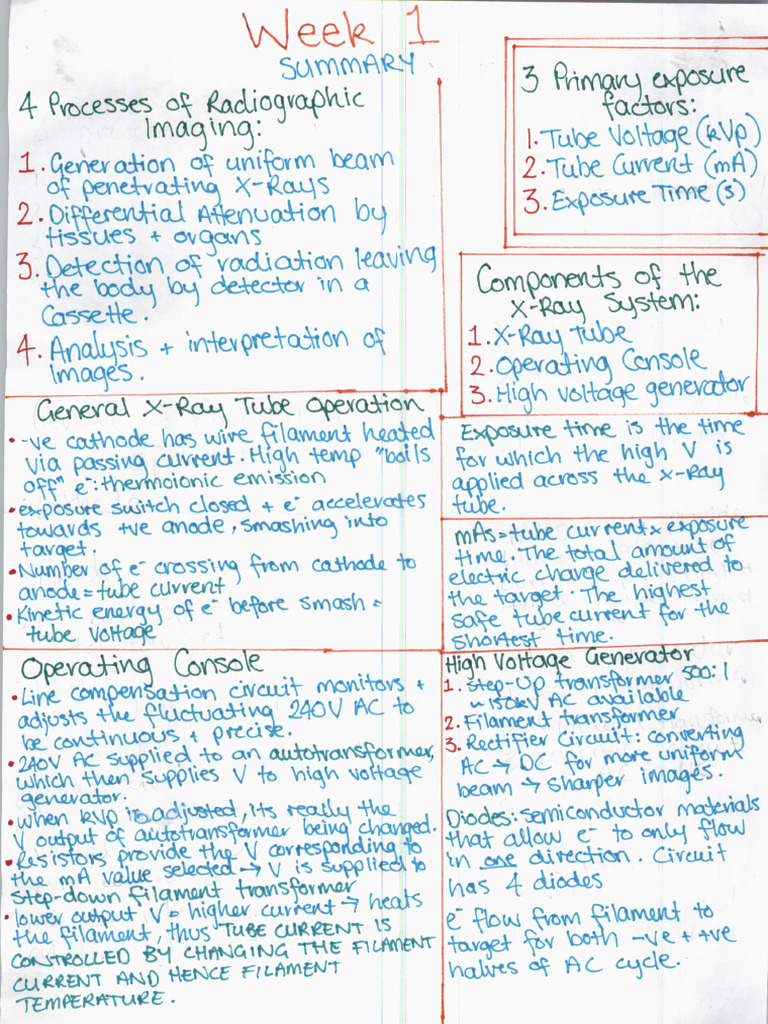 Week 1
SUMMARY
4 Processes of Radiographic
Imaging:
1. Generation of uniform beam
of penetrating X-Rays
2. Differential Attenuation by
tissues + organs
3. Detection of radiation leaving
the body by detector in a
Cassette.
4. Analysis + interpretation of
images.
3 Primary exposure
factors:
1. Tube Voltage (kVp)
2. Tube Current (mA)
3. Exposure Time (s)
Components of the
X-Ray System:
1. X-Ray Tube
2. Operating Console
3. High voltage generator
General X-Ray Tube Operation
• -ve cathode has wire filament heated
via passing current. High temp "boils
off" e⁻: thermoionic emission
• exposure switch closed + e⁻ accelerates
towards +ve anode, smashing into
target.
• Number of e⁻ crossing from cathode to
anode = tube current
• Kinetic energy of e⁻ before smash =
tube voltage
Exposure time is the time
for which the high V is
applied across the x-ray
tube.
mAs = tube current x exposure
time. The total amount of
electric charge delivered to
the target. The highest
safe tube current for the
shortest time.
Operating Console
• Line compensation circuit monitors +
adjusts the fluctuating 240V AC to
be continuous + precise.
• 240V AC supplied to an autotransformer,
which then supplies V to high voltage
generator.
• When kVp is adjusted, its really the
V output of autotransformer being changed.
• Resistors provide the V corresponding to
the mA value selected → V is supplied to
step-down filament transformer
• lower output V = higher current → heats
the filament, thus TUBE CURRENT IS
CONTROLLED BY CHANGING THE FILAMENT
CURRENT AND HENCE FILAMENT
TEMPERATURE.
High Voltage Generator
1. Step-Up transformer 500:1
~150kV AC available
2. Filament transformer
3. Rectifier Circuit: converting
AC → DC for more uniform
beam → sharper images.
Diodes: semiconductor materials
that allow e⁻ to only flow
in one direction. Circuit
has 4 diodes
e⁻ flow from filament to
target for both -ve + +ve
halves of AC cycle.